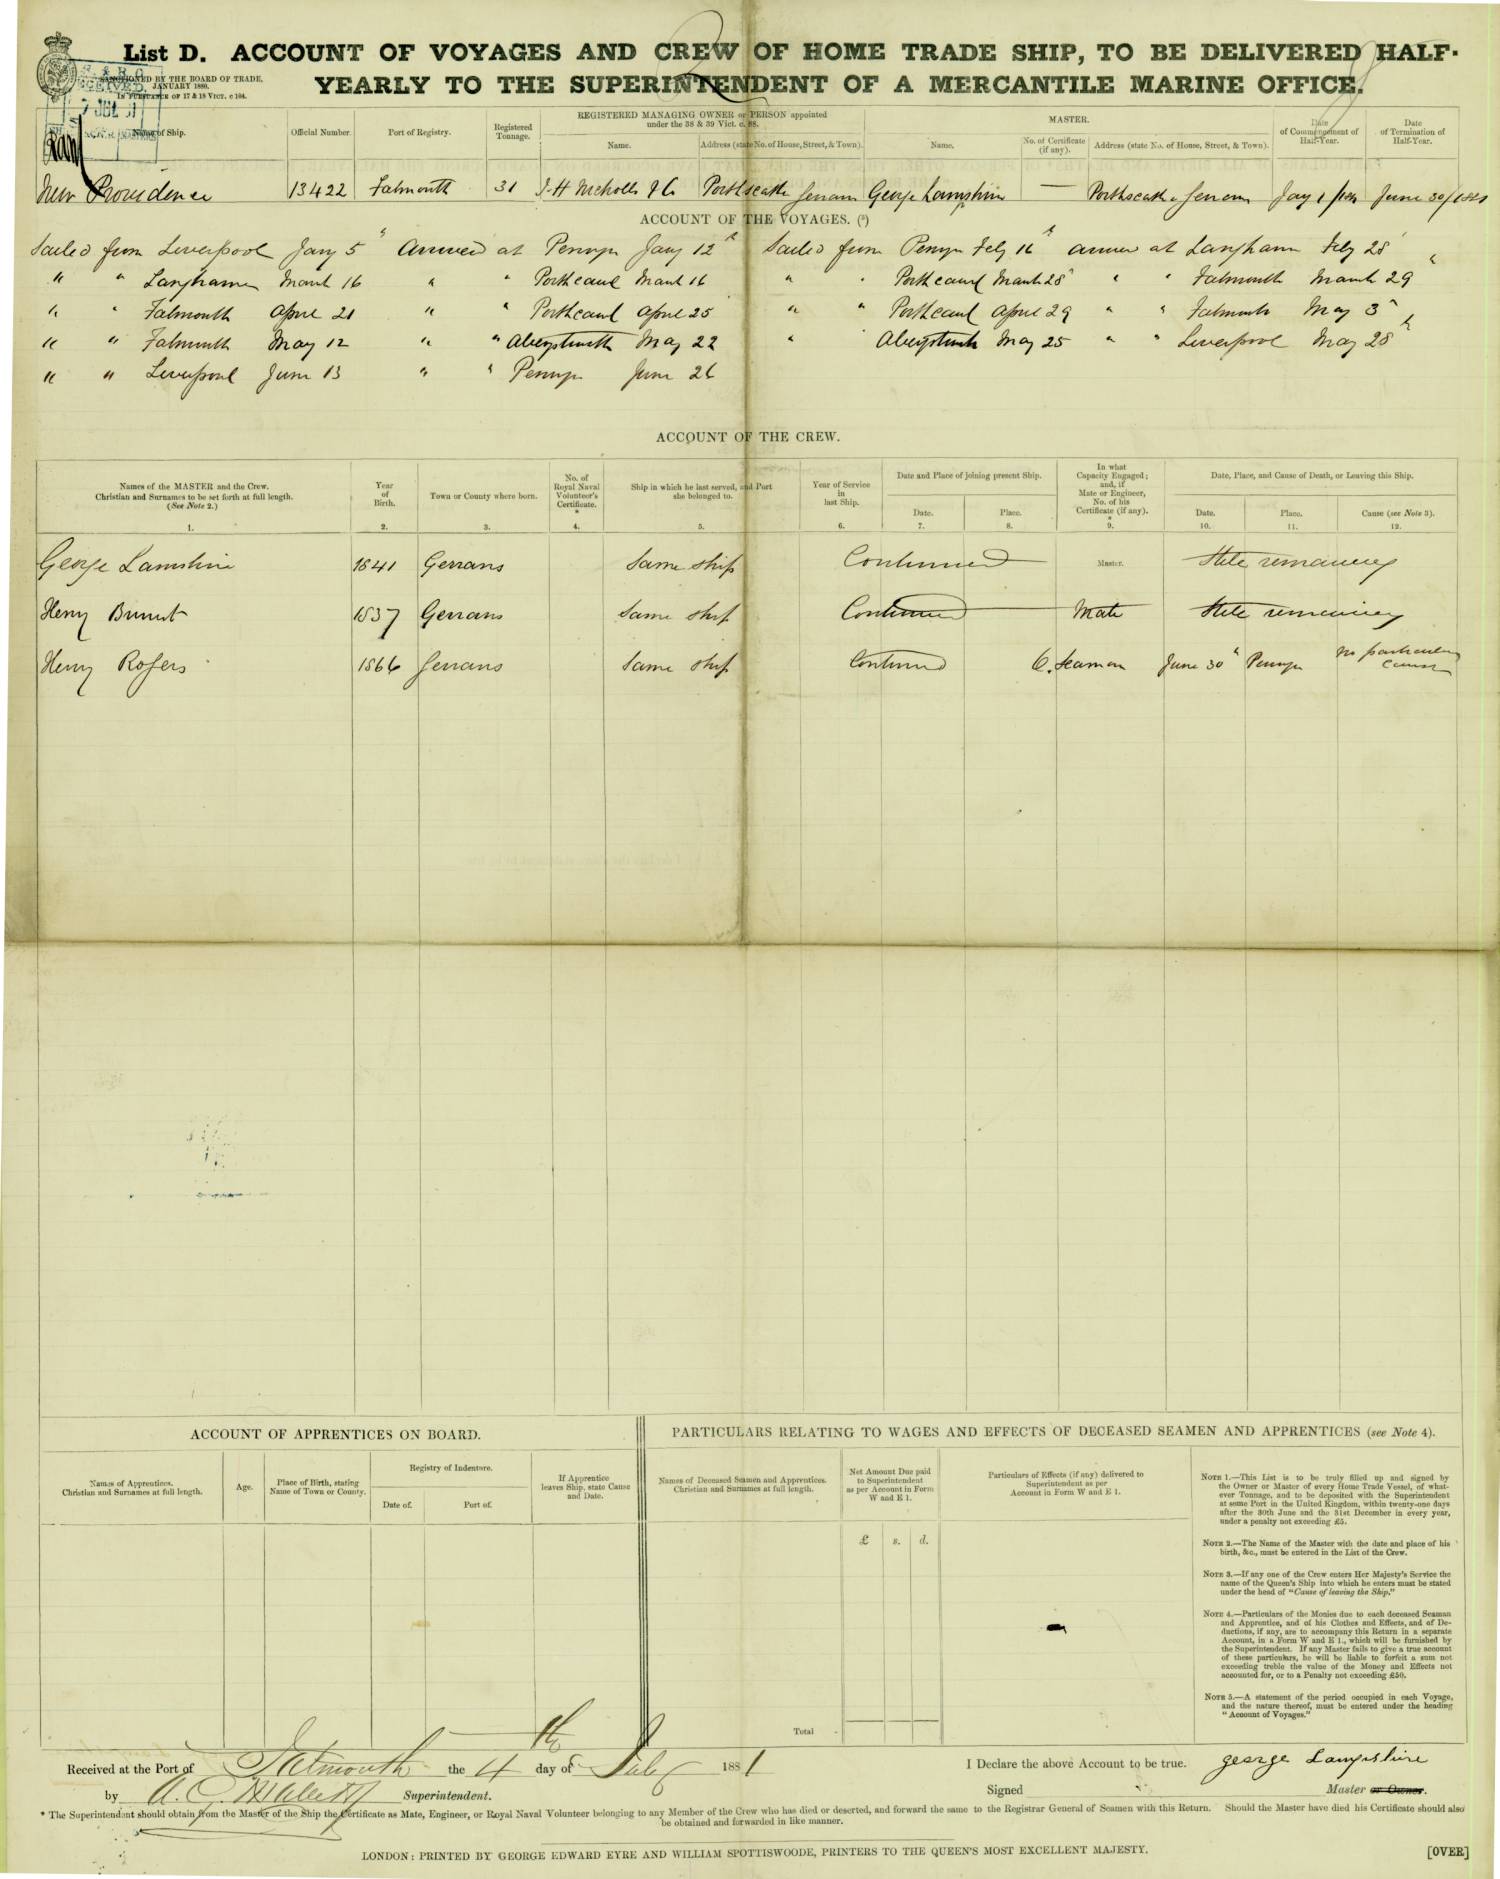 List D. ACCOUNT OF VOYAGES AND CREW OF HOME TRADE SHIP, TO BE DELIVERED HALF-
YEARLY TO THE SUPERINTENDENT OF A MERCANTILE MARINE OFFICE.
SANCTIONED BY THE BOARD OF TRADE.
JANUARY 1880.
IN PURSUANCE OF 17 & 18 VICT. c 104.
Name of Ship.
Official Number.
Port of Registry.
Registered Tonnage.
REGISTERED MANAGING OWNER or PERSON appointed under the 38 & 39 Vict. c. 88.
Name.
Address (state No. of House, Street, & Town).
MASTER.
Name.
No. of Certificate (if any).
Address (state No. of House, Street, & Town).
Date of Commencement of Half-Year.
Date of Termination of Half-Year.
New Providence 13422 Falmouth 31 J. H Nicholls & Co Porthscatho Gerrans George Lampshire — Porthscatho Gerrans Jany 1/1881 June 30/1881
ACCOUNT OF THE VOYAGES. (5)
Sailed from Liverpool Jany 5th Arrived at Penryn Jany 12th Sailed from Penryn Feby 16th arrived at Langharn Feby 28
" " Langharne March 16 " " Porthcawl March 16 " " Porthcawl March 28th " " Falmouth March 29th
" " Falmouth April 21 " " Porthcawl April 25 " " Porthcawl April 29 " " Falmouth May 3
" " Falmouth May 12 " " Aberystwith May 22 " " Aberystwith May 25 " " Liverpool May 28th
" " Liverpool June 13 " " Penryn June 26
ACCOUNT OF THE CREW.
Names of the MASTER and the Crew.
Christian and Surnames to be set forth at full length.
(See Note 2.)
1.
Year of Birth.
2.
Town or County where born.
3.
No. of Royal Naval Volunteer's Certificate. *
4.
Ship in which he last served, and Port she belonged to.
5.
Year of Service in last Ship.
6.
Date and Place of joining present Ship.
Date.
7.
Place.
8.
In what Capacity Engaged; and, if Mate or Engineer, No. of his Certificate (if any). *
9.
Date, Place, and Cause of Death, or Leaving this Ship.
Date.
10.
Place.
11.
Cause (see Note 3).
12.
George Lamshire 1841 Gerrans Same ship Continued Master. Still remaining
Henry 1837 Gerrans Same ship Continued Mate Still remaining
Henry Rogers 1866 Gerrans Same ship Continued Seaman June 30th Penryn no particular cause
ACCOUNT OF APPRENTICES ON BOARD.
Names of Apprentices.
Christian and Surnames at full length.
Age.
Place of Birth, stating Name of Town or County.
Registry of Indenture.
Date of.
Port of.
If Apprentice leaves Ship, state Cause and Date.
PARTICULARS RELATING TO WAGES AND EFFECTS OF DECEASED SEAMEN AND APPRENTICES (see Note 4).
Names of Deceased Seamen and Apprentices.
Christian and Surnames at full length.
Net Amount Due paid to Superintendent as per Account in Form W and E 1.
£ s. d.
Particulars of Effects (if any) delivered to Superintendent as per Account in Form W and E 1.
Total
NOTE 1.—This List is to be truly filled up and signed by
the Owner or Master of every Home Trade Vessel, of what-
ever Tonnage, and to be deposited with the Superintendent
at some Port in the United Kingdom, within twenty-one days
after the 30th June and the 31st December in every year,
under a penalty not exceeding £5.
NOTE 2.—The Name of the Master with the date and place of his
birth, &c., must be entered in the List of the Crew.
NOTE 3.—If any one of the Crew enters Her Majesty's Service the
name of the Queen's Ship into which he enters must be stated
under the head of "Cause of leaving the Ship."
NOTE 4.—Particulars of the Monies due to each deceased Seaman
and Apprentice, and of his Clothes and Effects, and of De-
ductions, if any, are to accompany this Return in a separate
Account, in a Form W and E 1., which will be furnished by
the Superintendent. If any Master fails to give a true account
of these particulars, he will be liable to forfeit a sum not
exceeding treble the value of the Money and Effects not
accounted for, or to a Penalty not exceeding £50.
NOTE 5.—A statement of the period occupied in each Voyage,
and the nature thereof, must be entered under the heading
"Account of Voyages."
Received at the Port of Falmouth the 4th day of July 1881
by Superintendent.
I Declare the above Account to be true.
Signed george Lampshire Master or Owner.
* The Superintendent should obtain from the Master of the Ship the Certificate as Mate, Engineer, or Royal Naval Volunteer belonging to any Member of the Crew who has died or deserted, and forward the same to the Registrar General of Seamen with this Return. Should the Master have died his Certificate should also
be obtained and forwarded in like manner.
LONDON: PRINTED BY GEORGE EDWARD EYRE AND WILLIAM SPOTTISWOODE, PRINTERS TO THE QUEEN'S MOST EXCELLENT MAJESTY.
[OVER]